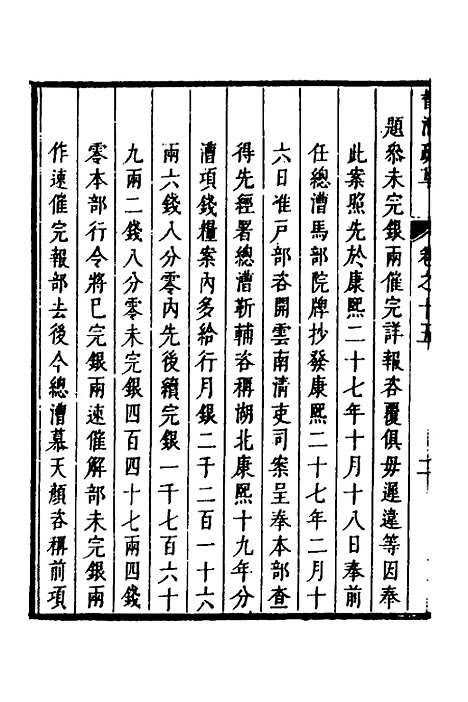 督漕疏草 卷之十五
題參未完銀兩催完詳報咨覆俱毋遲違等因奉
此案照先於康熙二十七年十月十八日奉前
任總漕馬部院牌抄發康熙二十七年二月十
六日准戸部咨開雲南清吏司案呈奉本部查
得先經署總漕靳輔咨稱湖北康熙十九年分
漕項錢糧案內多給行月銀二千二百一十六
兩六錢八分零內先後續完銀一千七百六十
九兩二錢八分零未完銀四百四十七兩四錢
零本部行令將已完銀兩速催解部未完銀兩
作速催完報部去後今總漕慕天顏咨稱前項